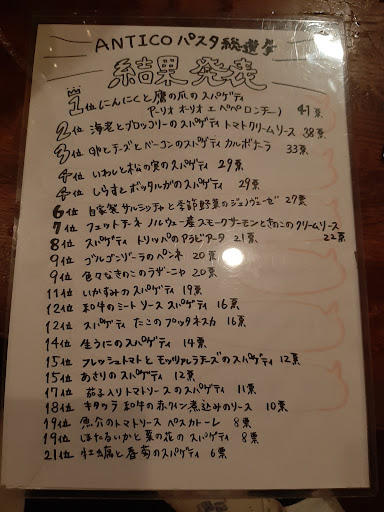 ANTICO パスタ総選挙
結果発表
1位 にんにくと鷹の爪のスパゲティ
アーリオ オーリオ エ ペペロンチーノ 41票
2位 海老とブロッコリーのスパゲティ トマトクリームソース 38票
3位 卵とチーズとベーコンのスパゲティ カルボナーラ 33票
4位 いわしと松の実のスパゲティ 29票
4位 しらすとボッタルガのスパゲティ 29票
6位 自家製サルシッチャと季節野菜のジェノヴェーゼ 27票
7位 フェットチーネ ノルウェー産スモークサーモンときのこのクリームソース
22票
8位 スパゲティ トリッパのアラビアータ 21票
9位 ゴルゴンゾーラのペンネ 20票
9位 色々なきのこのラザーニャ 20票
11位 いかすみのスパゲティ 19票
12位 和牛のミートソーススパゲティ 16票
12位 スパゲティ たこのプッタネスカ 16票
14位 生うにのスパゲティ 14票
15位 フレッシュトマトとモッツァレラチーズのスパゲティ 12票
15位 あさりのスパゲティ 12票
17位 茄子入りトマトソースのスパゲティ 11票
18位 キタッラ 和牛の赤ワイン煮込みのソース 10票
19位 魚介のトマトソース ペスカトーレ 8票
19位 ほたるいかと菜の花のスパゲティ 8票
21位 牡蠣と春菊のスパゲティ 6票